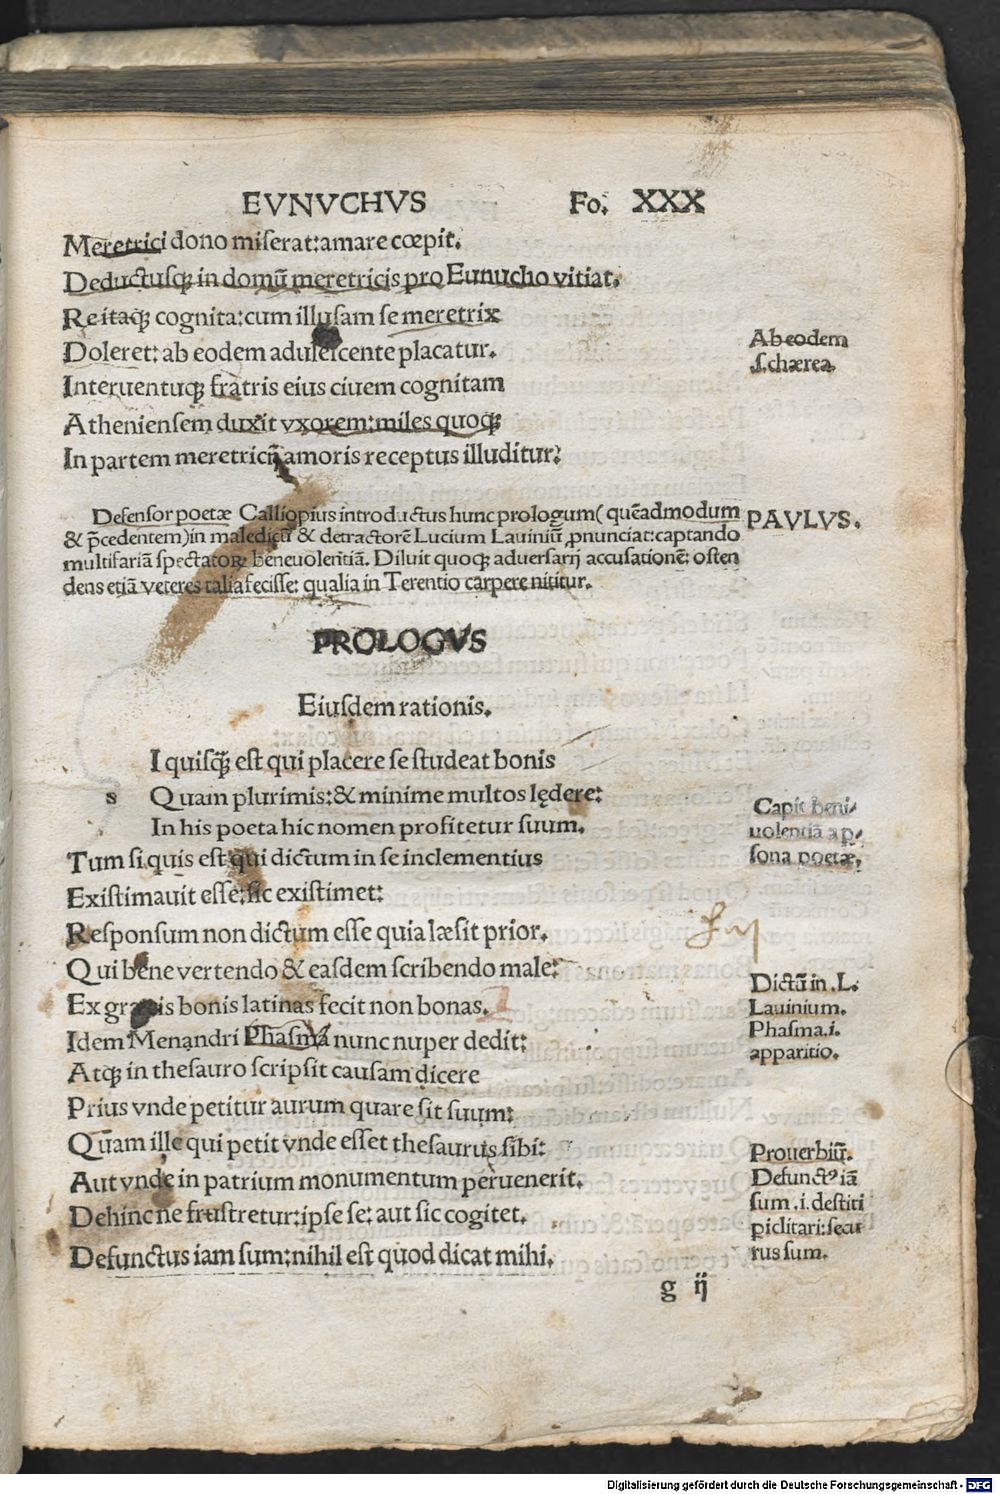 EVNVCHVS Fo. XXX
Meretrici dono miserat:amare cœpit.
Deductusq; in domū meretricis pro Eunucho vitiat.
Re itaq; cognita:cum illusam se meretrix
Doleret: ab eodem adulescente placatur.
Ab eodem
.s.chærea.
Interuentuq; fratris eius ciuem cognitam
Atheniensem duxit vxorem:miles quoq;
In partem meretricij amoris receptus illuditur:
Defensor poetæ Calliopius introductus hunc prologum( quēadmodum
PAVLVS.
& p̄cedentem)in maledicū & detractorē Lucium Lauiniū ꝓnunciat:captando
multifariā spectatoꝝ beneuolentiā. Diluit quoq; aduersarij accusationē: osten
dens etiā veteres talia fecisse: qualia in Terentio carpere nititur.
PROLOGVS
Eiusdem rationis.
I quisq̄ est qui placere se studeat bonis
s Quam plurimis:& minime multos lędere:
In his poeta hic nomen profitetur suum.
Capit beni/
uolentiā a p/
sona poetæ.
Tum si quis est qui dictum in se inclementius
Existimauit esse:sic existimet:
Responsum non dictum esse quia læsit prior.
Qui bene vertendo & easdem scribendo male:
Ex græcis bonis latinas fecit non bonas.
Dictū in .L.
Lauinium.
Idem Menandri Phasma nunc nuper dedit:
Phasma.i.
apparitio.
Atq; in thesauro scripsit causam dicere
Prius vnde petitur aurum quare sit suum:
Quam ille qui petit vnde esset thesaurus sibi:
Aut vnde in patrium monumentum peruenerit.
Dehinc ne frustretur:ipse se: aut sic cogitet.
Defunctus iam sum:nihil est quod dicat mihi.
Prouerbiū.
Defunctꝰ iā
sum .i. destiti
piclitari:secu
rus sum.
g ij
Digitalisierung gefördert durch die Deutsche Forschungsgemeinschaft - DFG